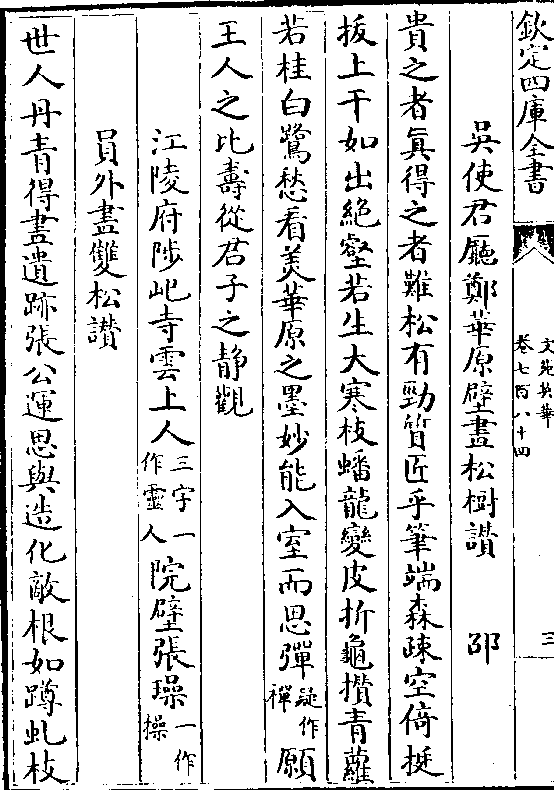 欽定四庫全書
文苑英華
卷七百八十四
三
吳使君廳鄭華原壁畫松樹讚 邵
貴之者真得之者難松有勁質匠乎筆端森疎空倚挺
拔上干如出絶壑若生大寒枝蟠龍變皮折龜攢青蘿
若桂白鷺愁看美華原之墨妙能入室而思彈疑作禪願
王人之比壽從君子之静觀
江陵府陟屺寺雲上人三字一作靈人院壁張璪一作操
員外畫雙松讃
世人丹青得畫遺跡張公運思與造化敵根如蹲虬枝